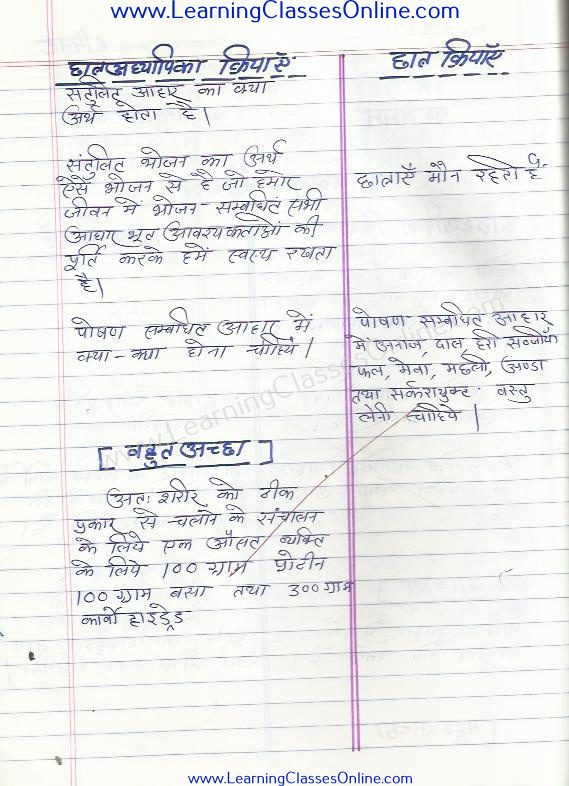 www.LearningClassesOnline.com
छात्रअध्यापिका क्रियाएँ
संतुलित आहार का क्या
अर्थ होता है।
संतुलित भोजन का अर्थ
ऐसे भोजन से है जो हमारे
जीवन में भोजन-सम्बंधित सभी
आधार भूत आवश्यकताओं की
पूर्ति करके हमें स्वस्थ रखता
है।
पोषण सम्बंधित आहार में
क्या-क्या होना चाहिये।
[बहुत अच्छा]
अतः शरीर को ठीक
प्रकार से चलाने के संचालन
के लिये एक औसत व्यक्ति
के लिये 100 ग्राम प्रोटीन
100 ग्राम वसा तथा 300 ग्राम
कार्बोहाइड्रेड
छात्र क्रियाएँ
छात्राएँ मौन रहती है
पोषण-सम्बंधित आहार
में अनाज, दाल हरी सब्जीयाँ
फल, मेवा, मछली, अण्डा
तथा सर्करायुक्त वस्तु
लेनी चाहिये।
www.LearningClassesOnline.com
www.LearningClassesOnline.com